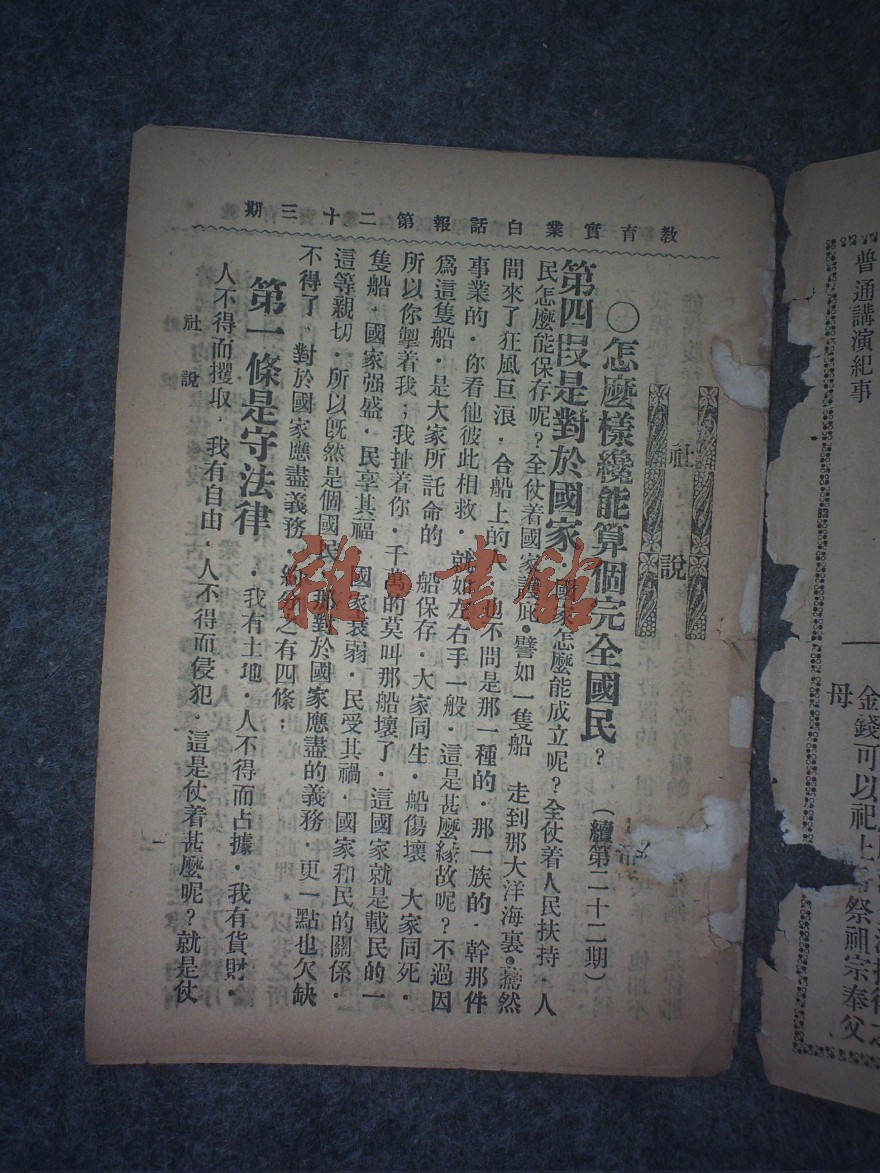 教育實業白話報第二十三期
社說
○怎麼樣纔能算個完全國民？（續第二十二期）
第四段是對於國家　國家怎麼能成立呢？全仗着人民扶持．人
民怎麼能保存呢？全仗着國家護庇．譬如一隻船　走到那大洋海裏。驀然
間來了狂風巨浪．合船上的人　也不問是那一種的．那一族的．幹那件
事業的．你看他彼此相救．就如左右手一般．這是甚麼緣故呢？不過因
爲這隻船．是大家所託命的　船保存．大家同生．船傷壞　大家同死．
所以你掣着我；我扯着你．千萬的莫叫那船壞了．這國家就是載民的一
隻船．國家强盛．民享其福．國家衰弱．民受其禍．國家和民的關係．
這等親切．所以既然是個國民．那對於國家應盡的義務．更一點也欠缺
不得了。對於國家應盡義務．約分之有四條：
第一條是守法律．我有土地．人不得而占據．我有貨財．
人不得而攫取．我有自由．人不得而侵犯．這是仗着甚麼呢？就是仗
社說
一
普通講演紀事
金錢可以祀上帝祭祖宗奉父
母
雜·書館